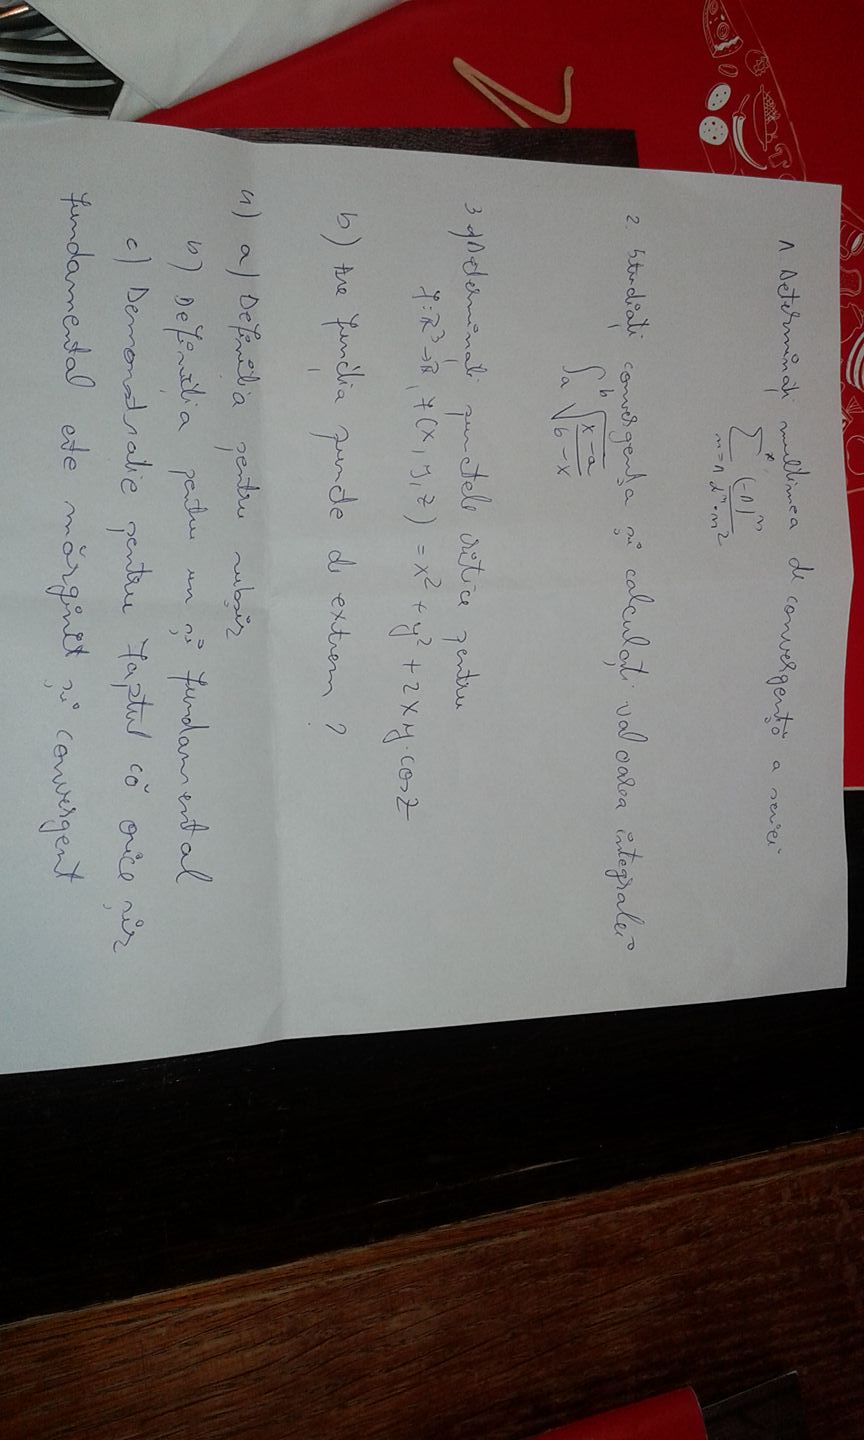 1. Determinați mulțimea de convergență a seriei
∑ n=1 ∞ (-1)^n / (2^n · n^2)
2. Studiați convergența și calculați valoarea integralei
∫_a^b √((x-a)/(b-x))
3 a) Determinați punctele critice pentru
f: ℝ³→ℝ, f(x, y, z) = x² + y² + 2xy·cosz
b) Are funcția puncte de extrem ?
4) a) Definiția pentru subșir
b) Definiția pentru un șir fundamental
c) Demonstrație pentru faptul că orice șir
fundamental este mărginit și convergent